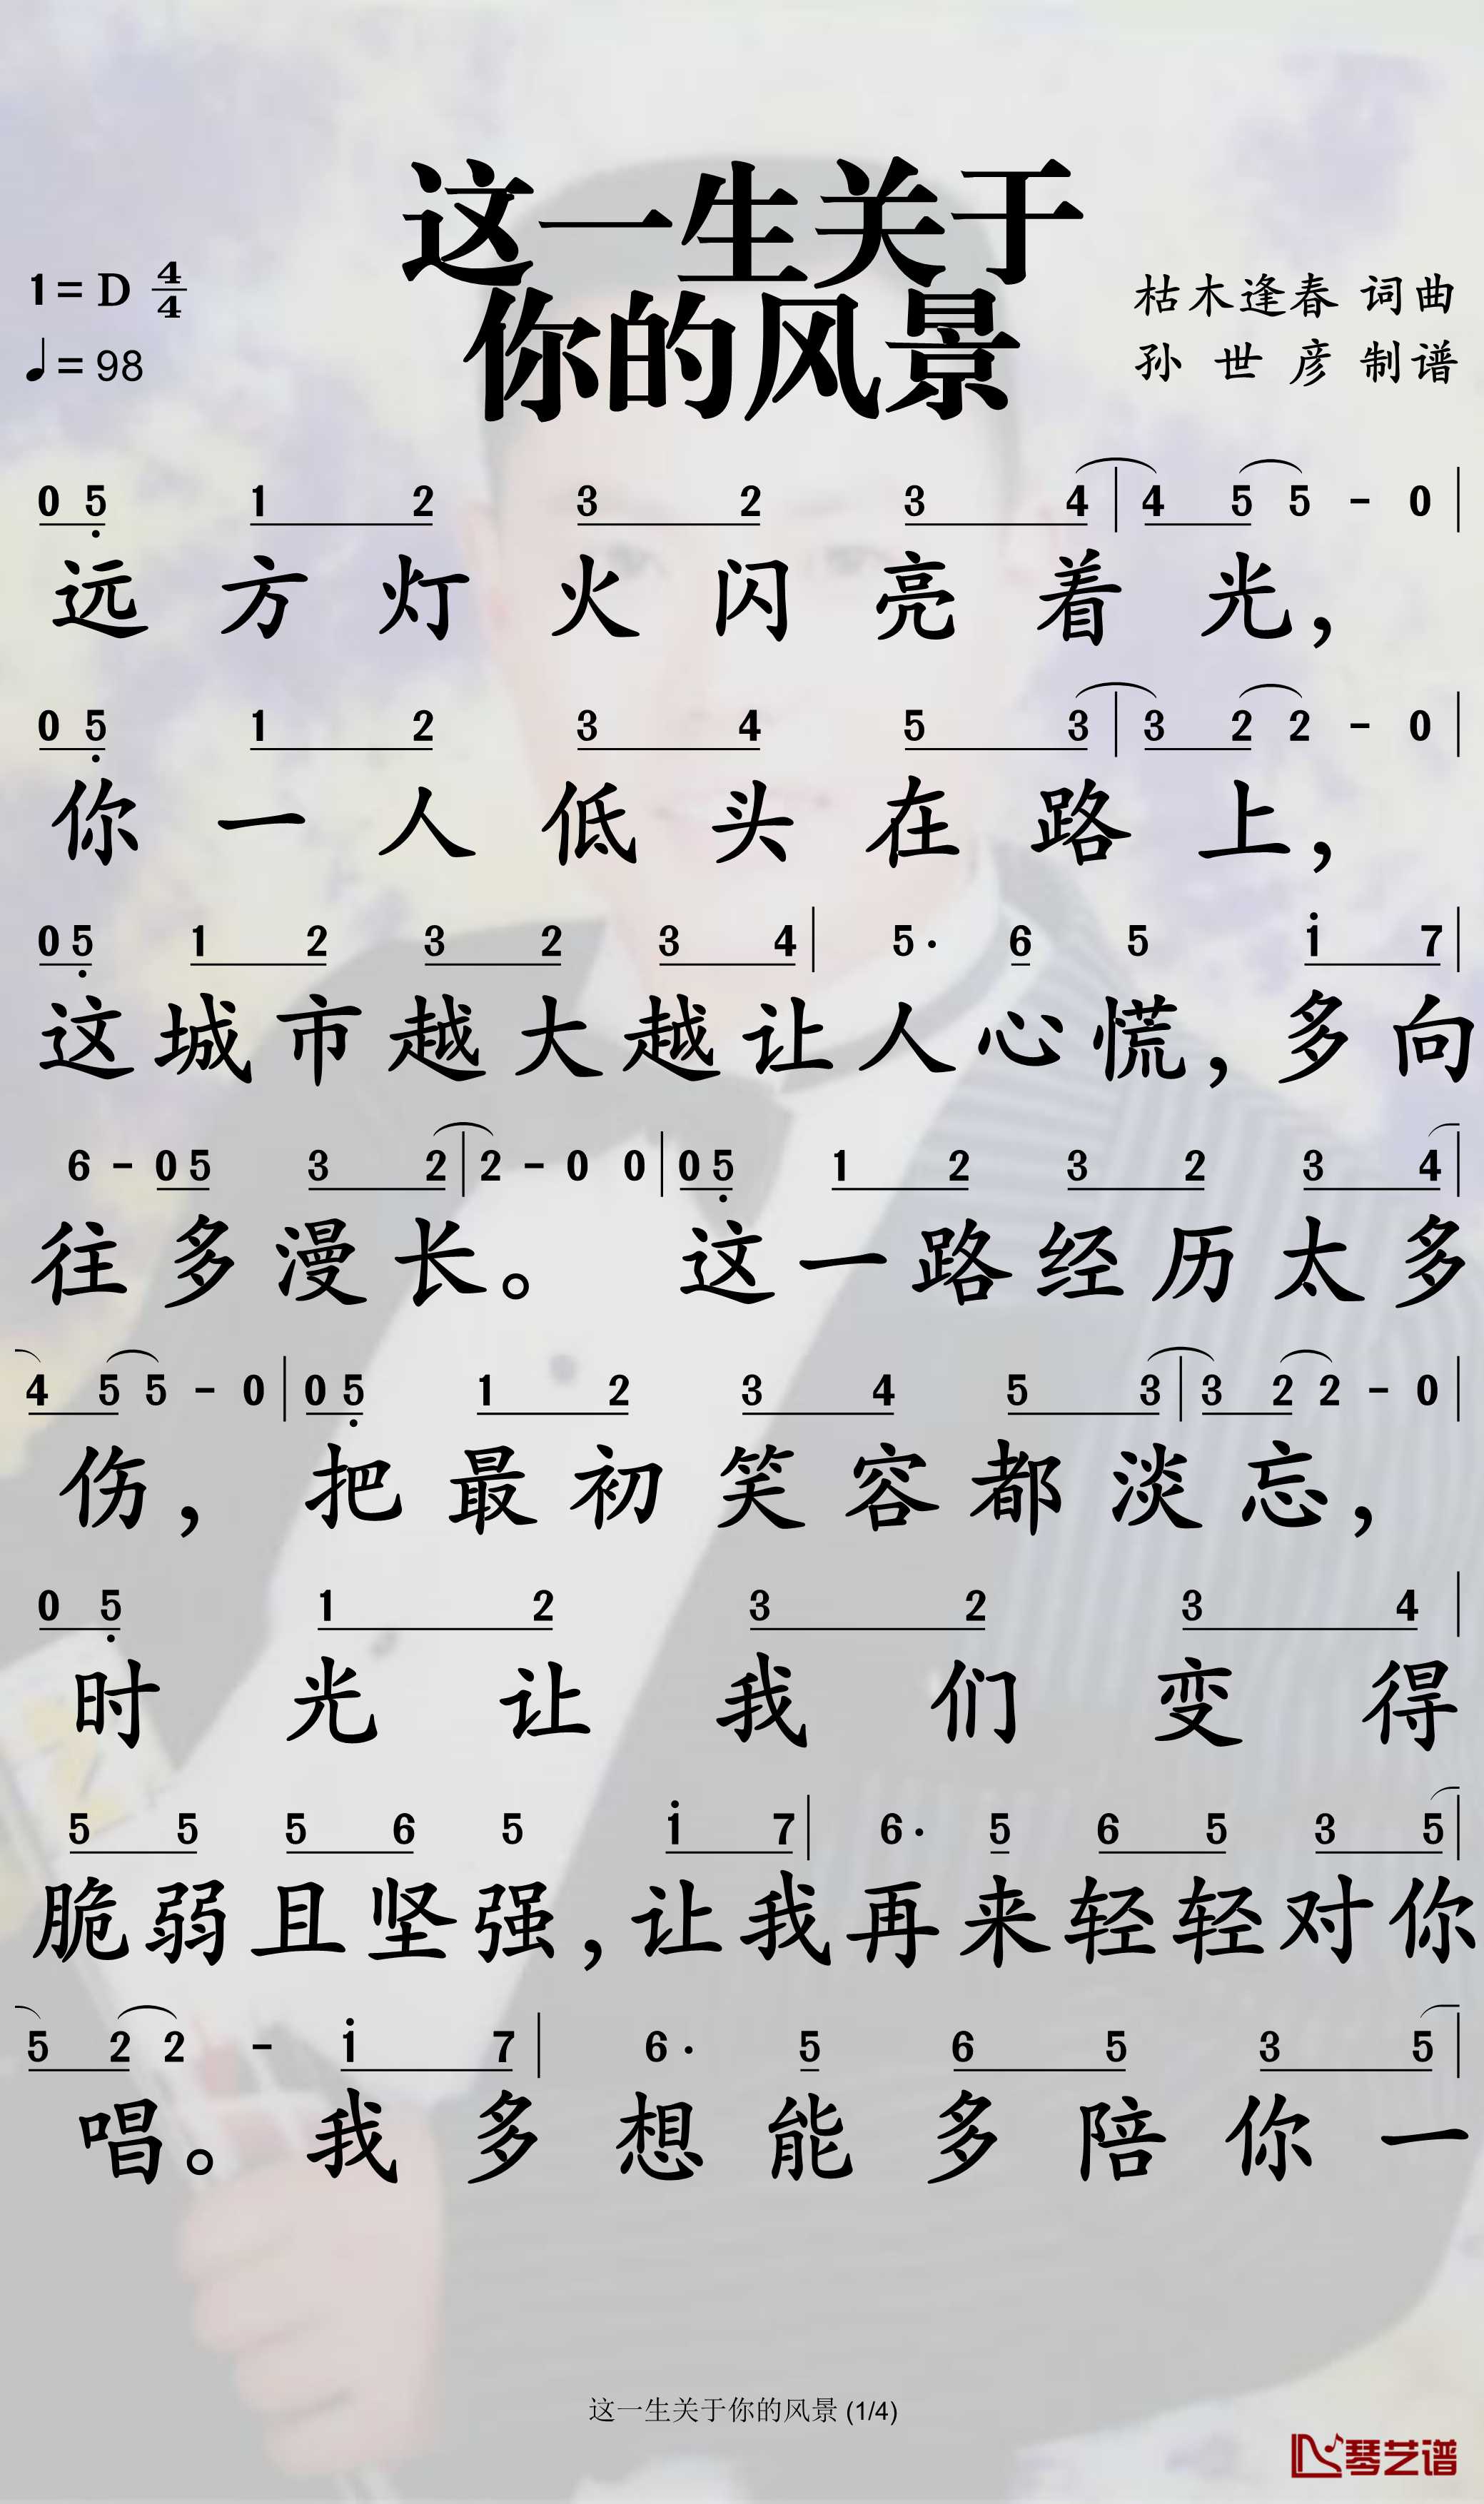 这一生关于
你的风景
1= D 4/4
♩= 98
枯木逢春 词曲
孙世彦 制谱
0 5 1 2 3 2 3 4 | 4 5 5 - 0 |
远方灯火闪亮着光，
0 5 1 2 3 4 5 3 | 3 2 2 - 0 |
你一人低头在路上，
0 5 1 2 3 2 3 4 | 5· 6 5 1 7 |
这城市越大越让人心慌，多向
6 - 0 5 3 2 | 2 - 0 0 | 0 5 1 2 3 2 3 4 |
往多漫长。 这一路经历太多
4 5 5 - 0 | 0 5 1 2 3 4 5 3 | 3 2 2 - 0 |
伤，把最初笑容都淡忘，
0 5 1 2 3 2 3 4 |
时光让我们变得
5 5 5 6 5 1 7 | 6· 5 6 5 3 5 |
脆弱且坚强，让我再来轻轻对你
5 2 2 - 1 7 | 6· 5 6 5 3 5 |
唱。我多想能多陪你一
这一生关于你的风景 (1/4)
琴艺谱